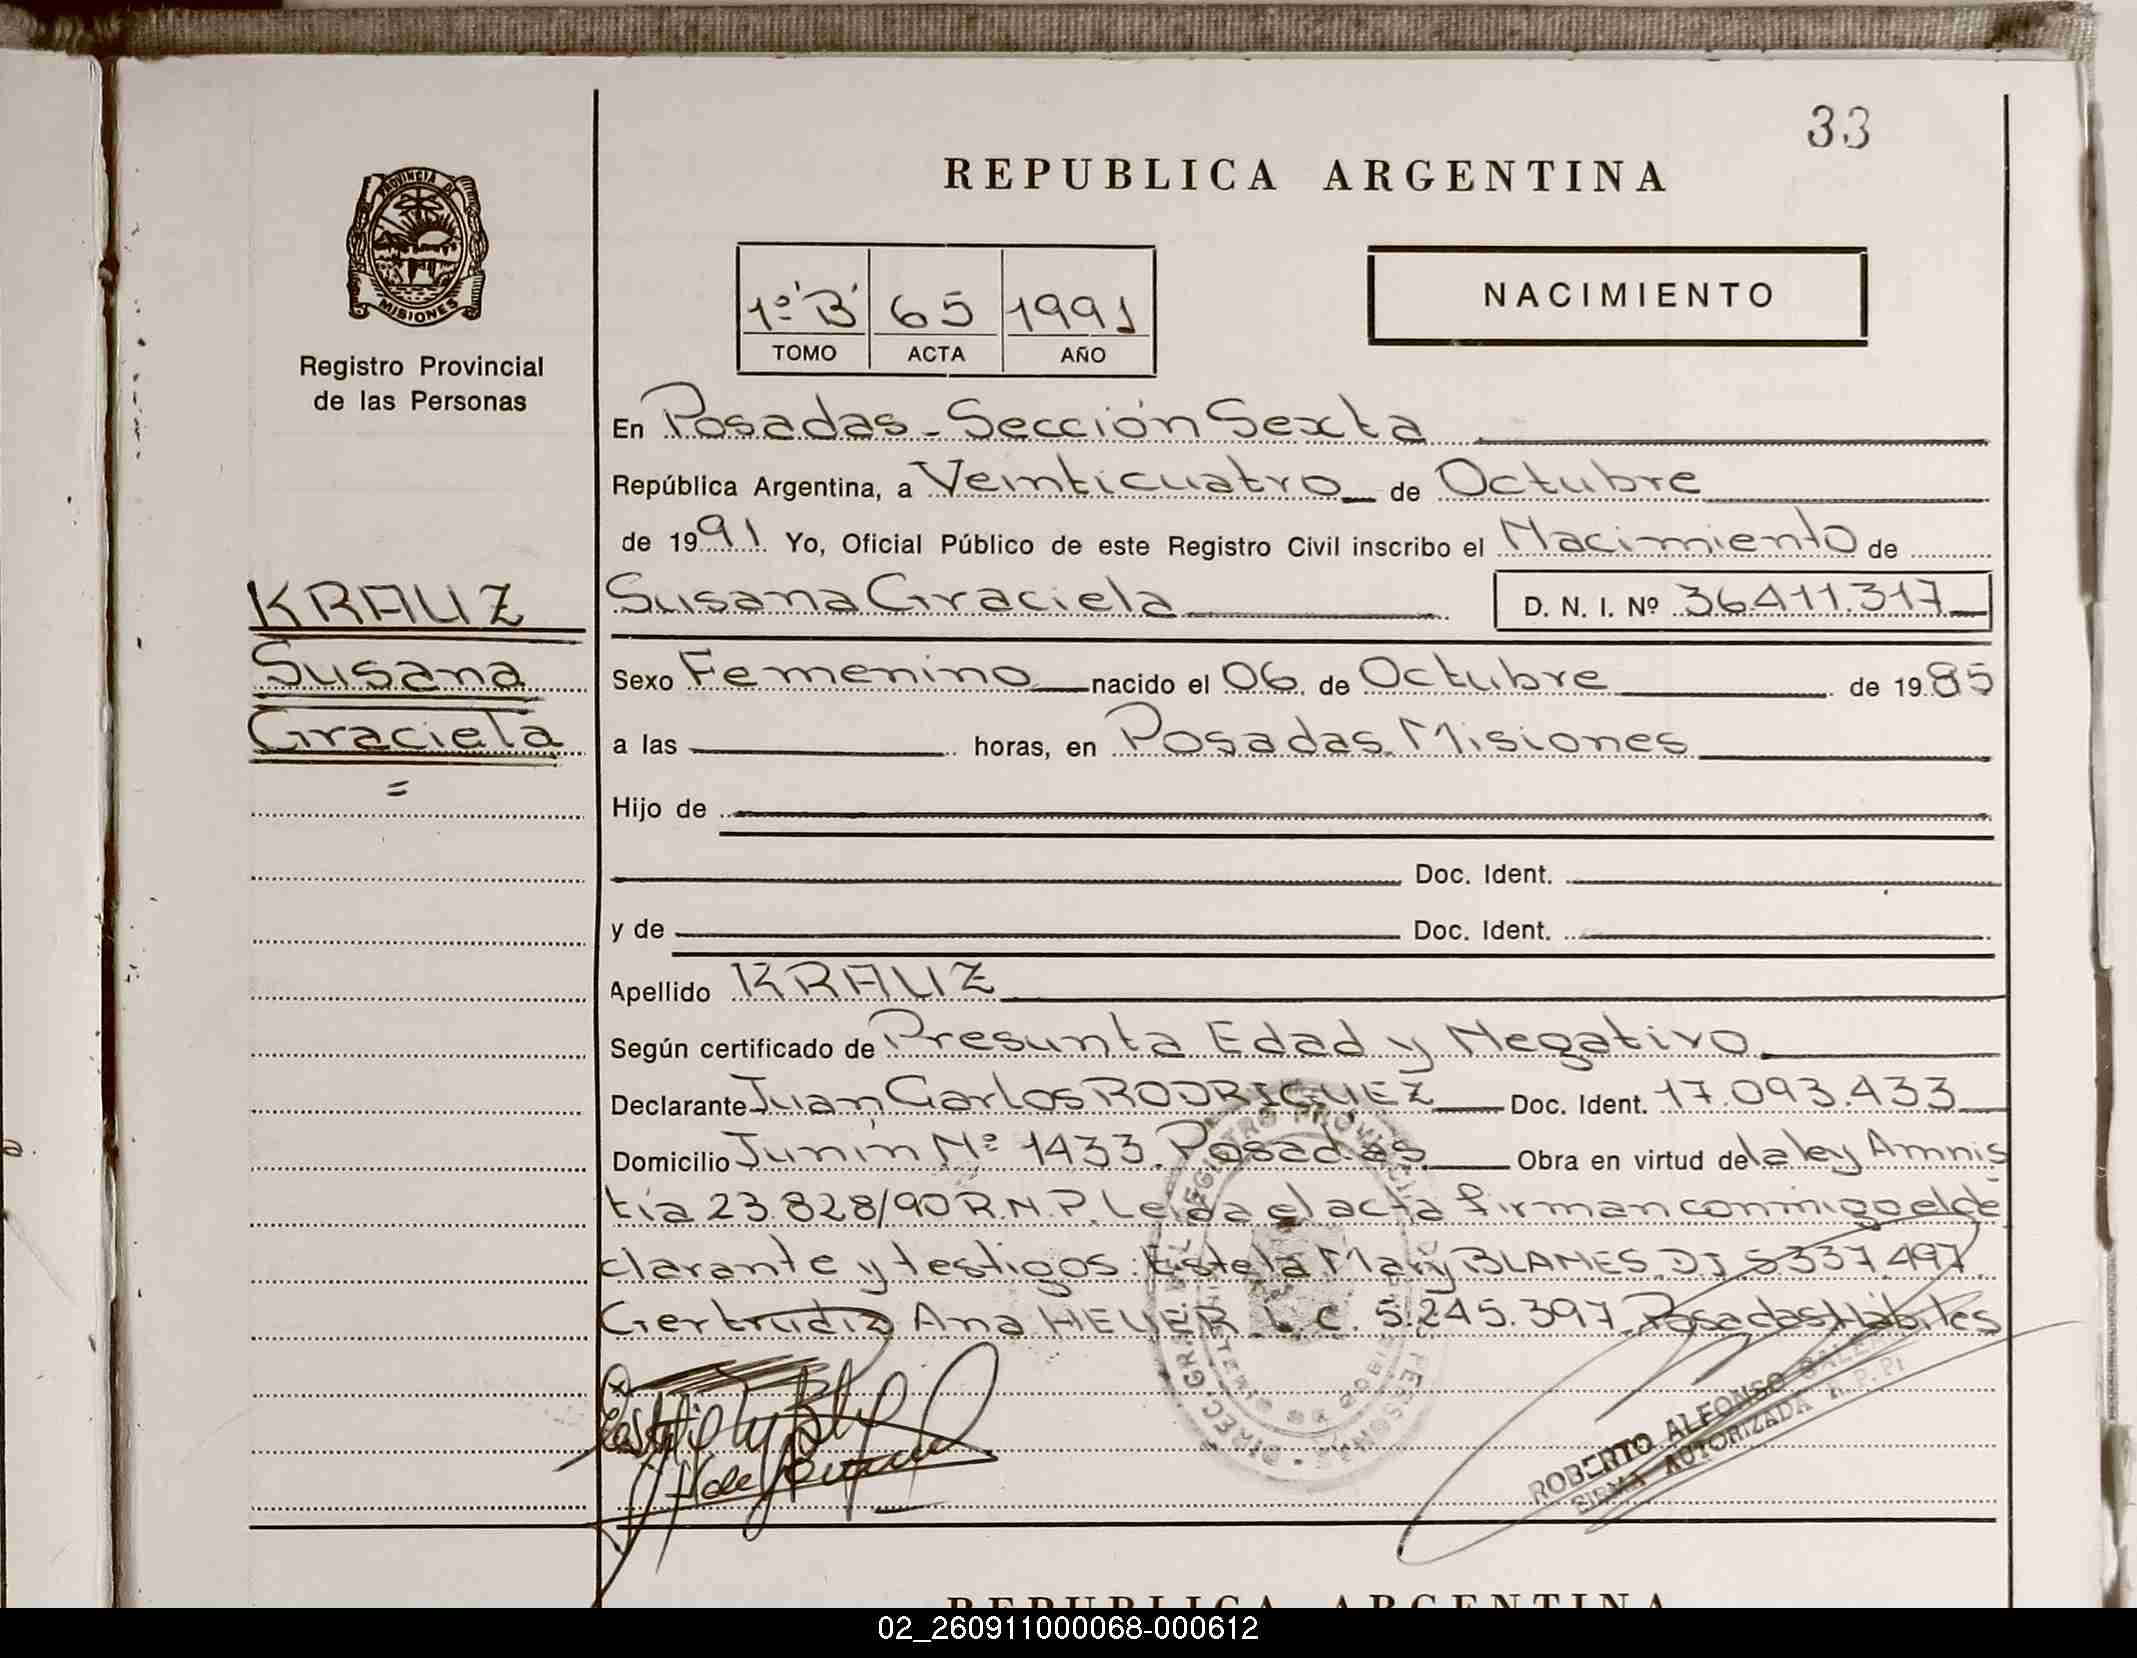 33
REPUBLICA ARGENTINA
PROVINCIA DE
MISIONES
Registro Provincial
de las Personas
1º "B" 65 1991
TOMO ACTA AÑO
NACIMIENTO
En Posadas - Sección Sexta
República Argentina, a Veinticuatro de Octubre
de 1991 Yo, Oficial Público de este Registro Civil inscribo el Nacimiento de
KRAUZ
Susana
Graciela
=
Susana Graciela D. N. I. Nº 36.411.317
Sexo Femenino nacido el 06 de Octubre de 1985
a las horas, en Posadas Misiones
Hijo de
Doc. Ident.
y de Doc. Ident.
Apellido KRAUZ
Según certificado de Presunta Edad y Negativo
Declarante Juan Carlos RODRIGUEZ Doc. Ident. 17.093.433
Domicilio Junín Nº 1433. Posadas Obra en virtud de la ley Amnis
tía 23.828/90 R.N.P. Leída el acta firman conmigo el de
clarante y testigos: Estela Mary BLANES DJ 5337.497
Gertrudiz Ana HEUER L.C. 5.245.397 Posadas Hábiles
ROBERTO ALFONSO
FIRMA AUTORIZADA R.P.P.
REPUBLICA ARGENTINA
02_260911000068-000612